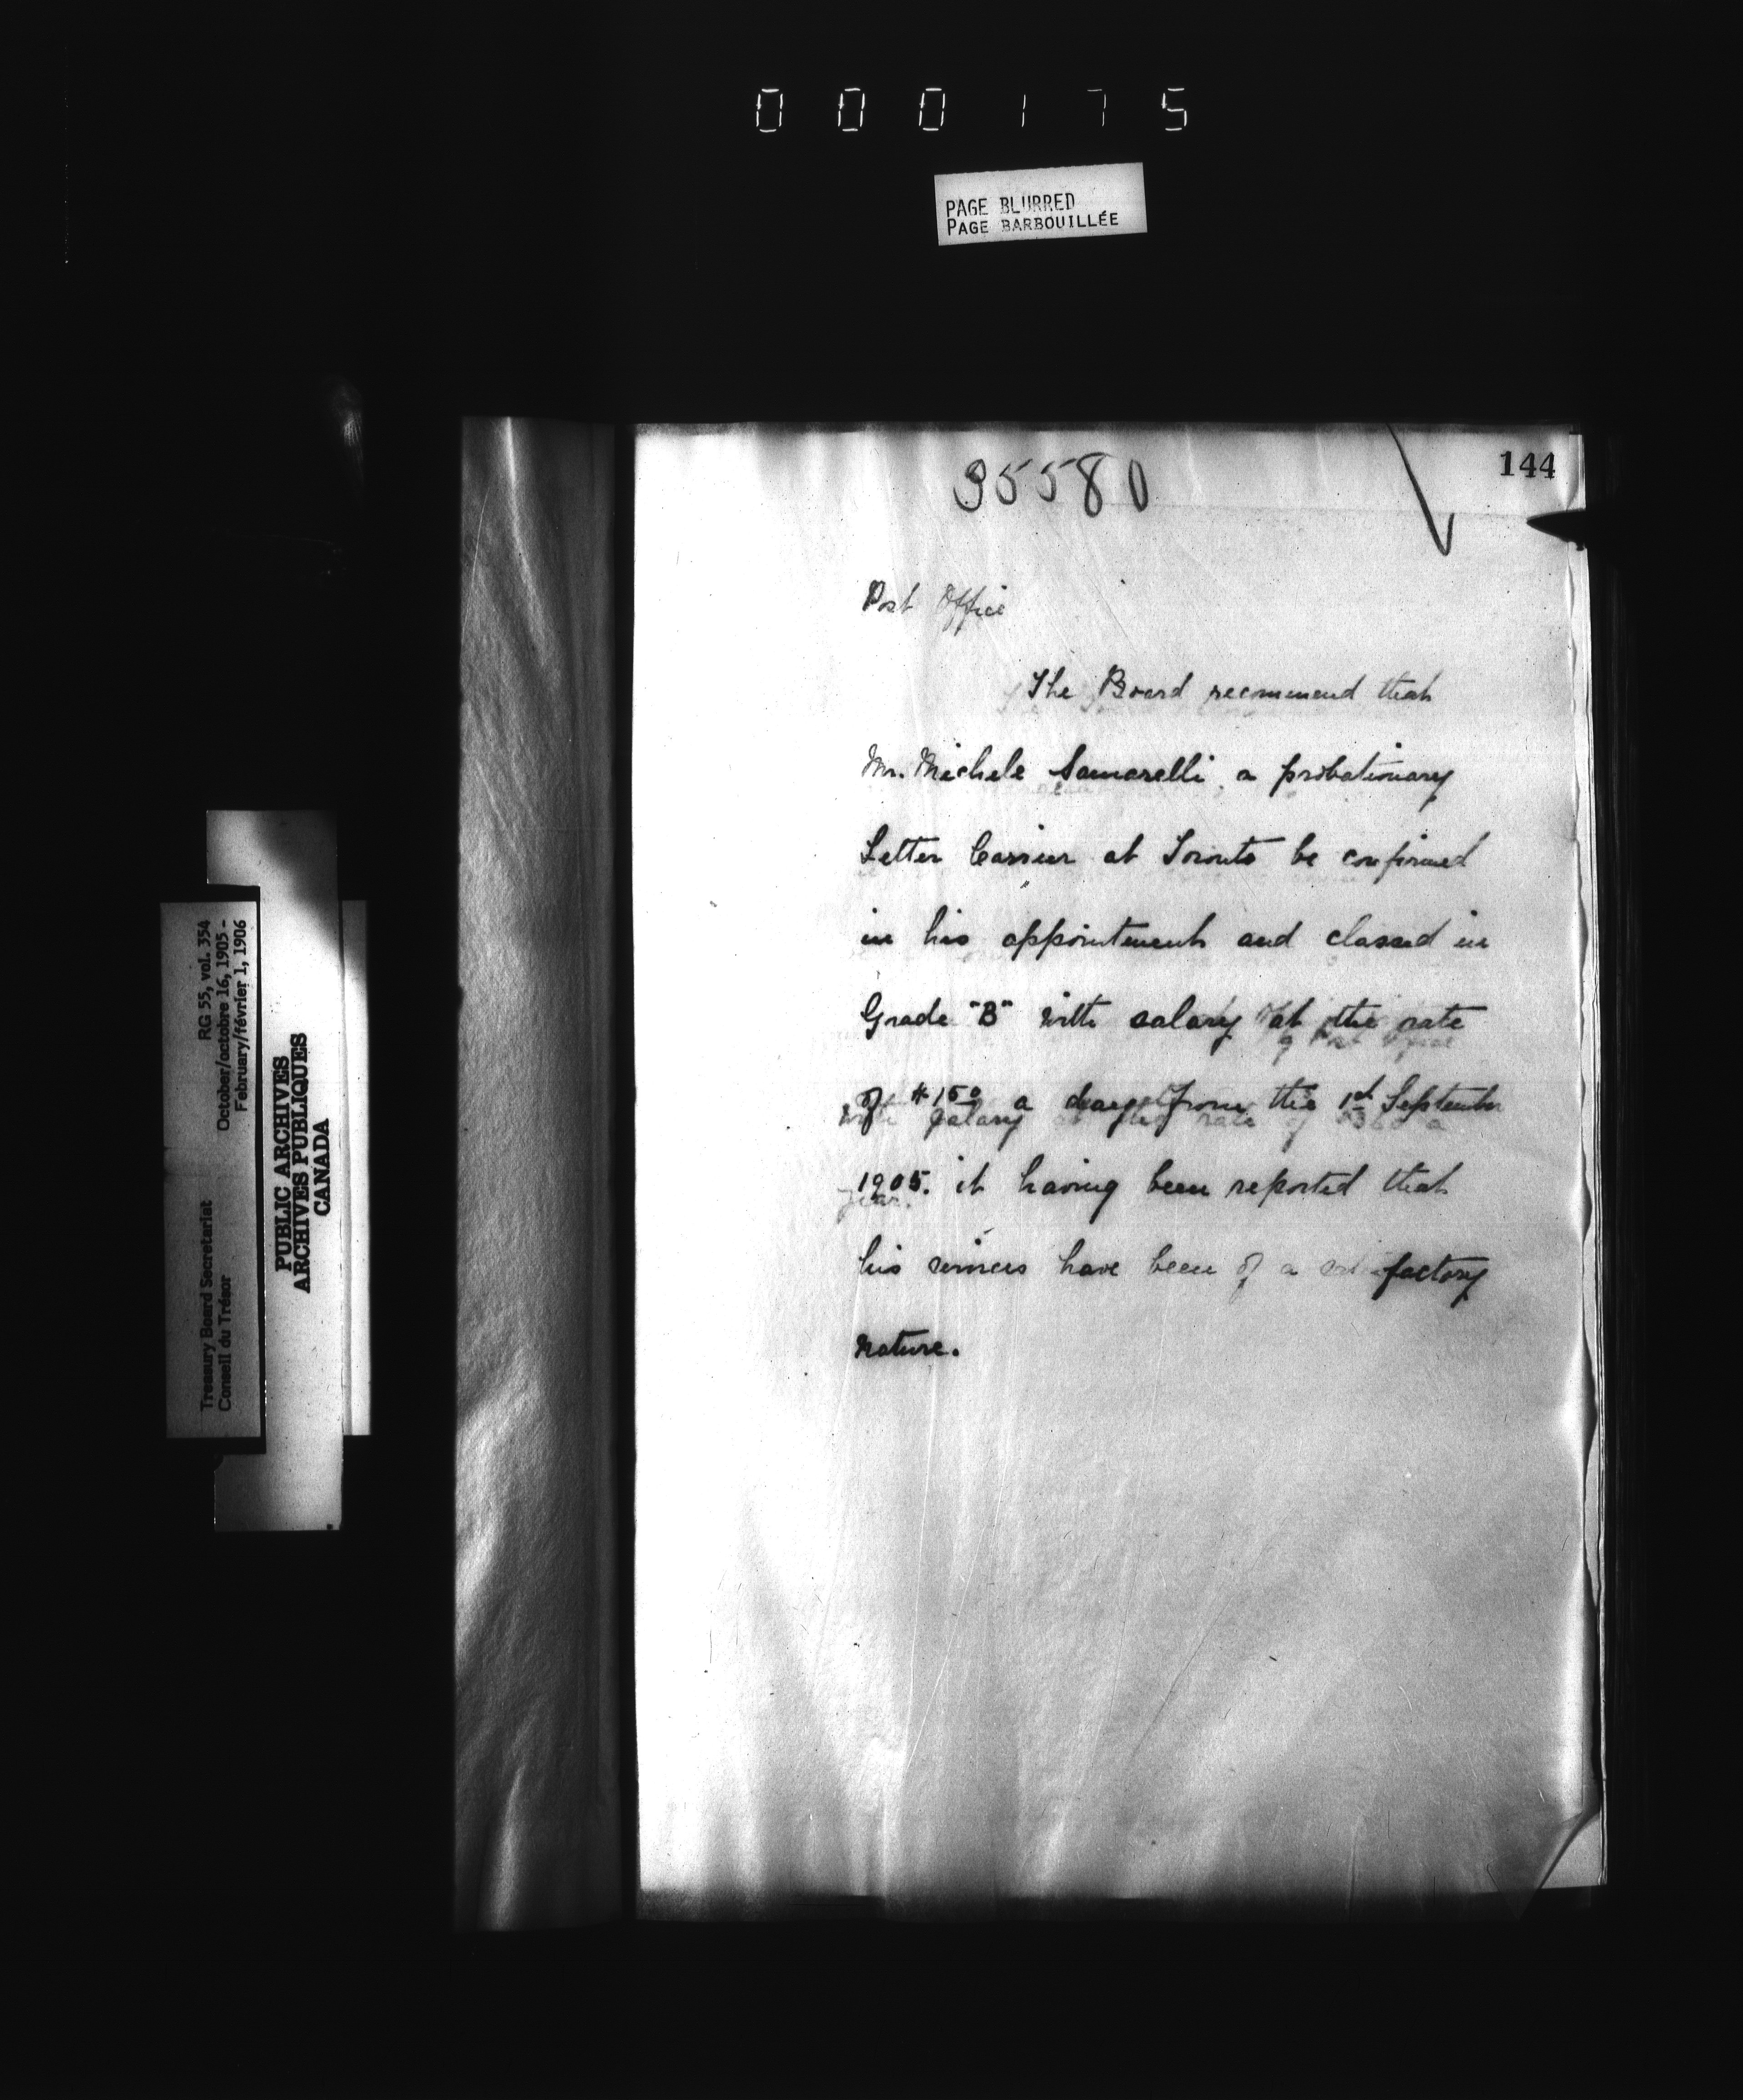 000175
PAGE BLURRED
PAGE BARBOUILLÉE
144
95580
Post Office
The Board recommend that
Mr. Michele Samarelli, a probationary
Letter Carrier at Toronto be confirmed
in his appointment and classed in
Grade "B" with salary at the rate
of $1 50 a day from the 1st September
1905. it having been reported that
his services have been of a satisfactory
nature.
Treasury Board Secretariat RG 55, vol. 354
Conseil du Trésor October/octobre 16, 1905 -
February/février 1, 1906
PUBLIC ARCHIVES
ARCHIVES PUBLIQUES
CANADA